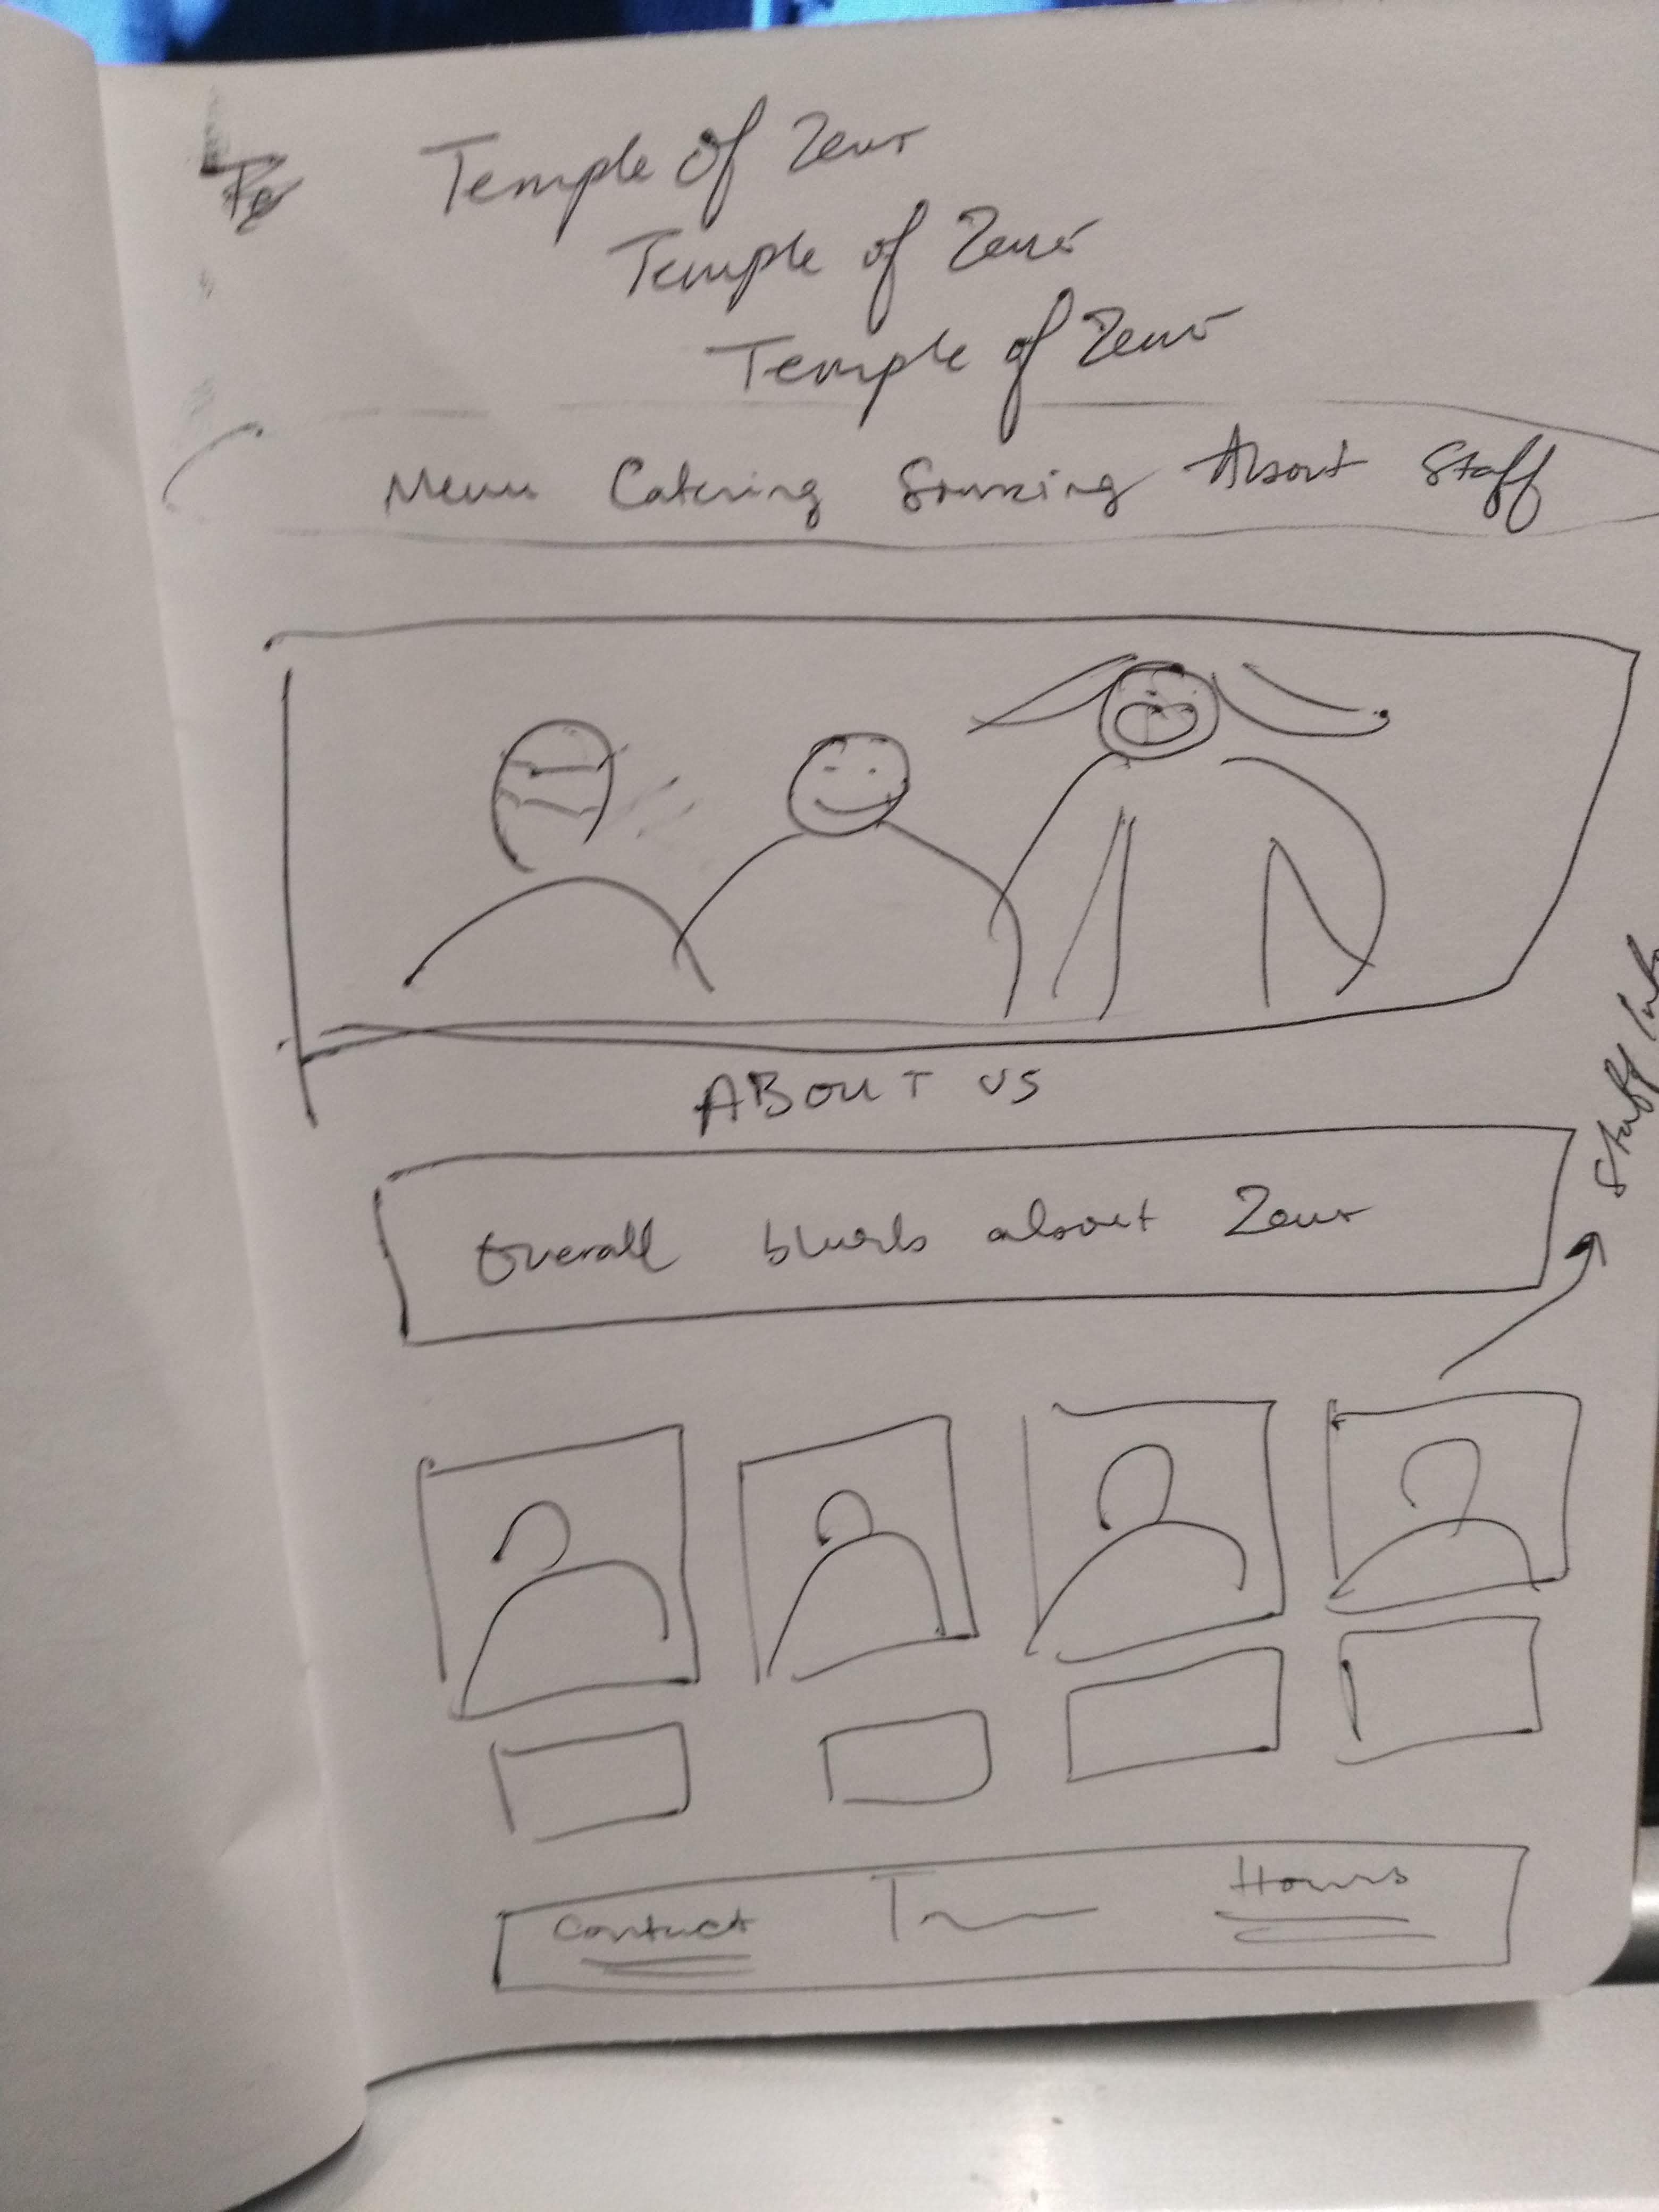 Temple of Zeus
Temple of Zeus
Temple of Zeus
Menu Catering Sourcing About Staff
ABOUT US
Overall blurb about Zeus
Staff
Contact
Hours